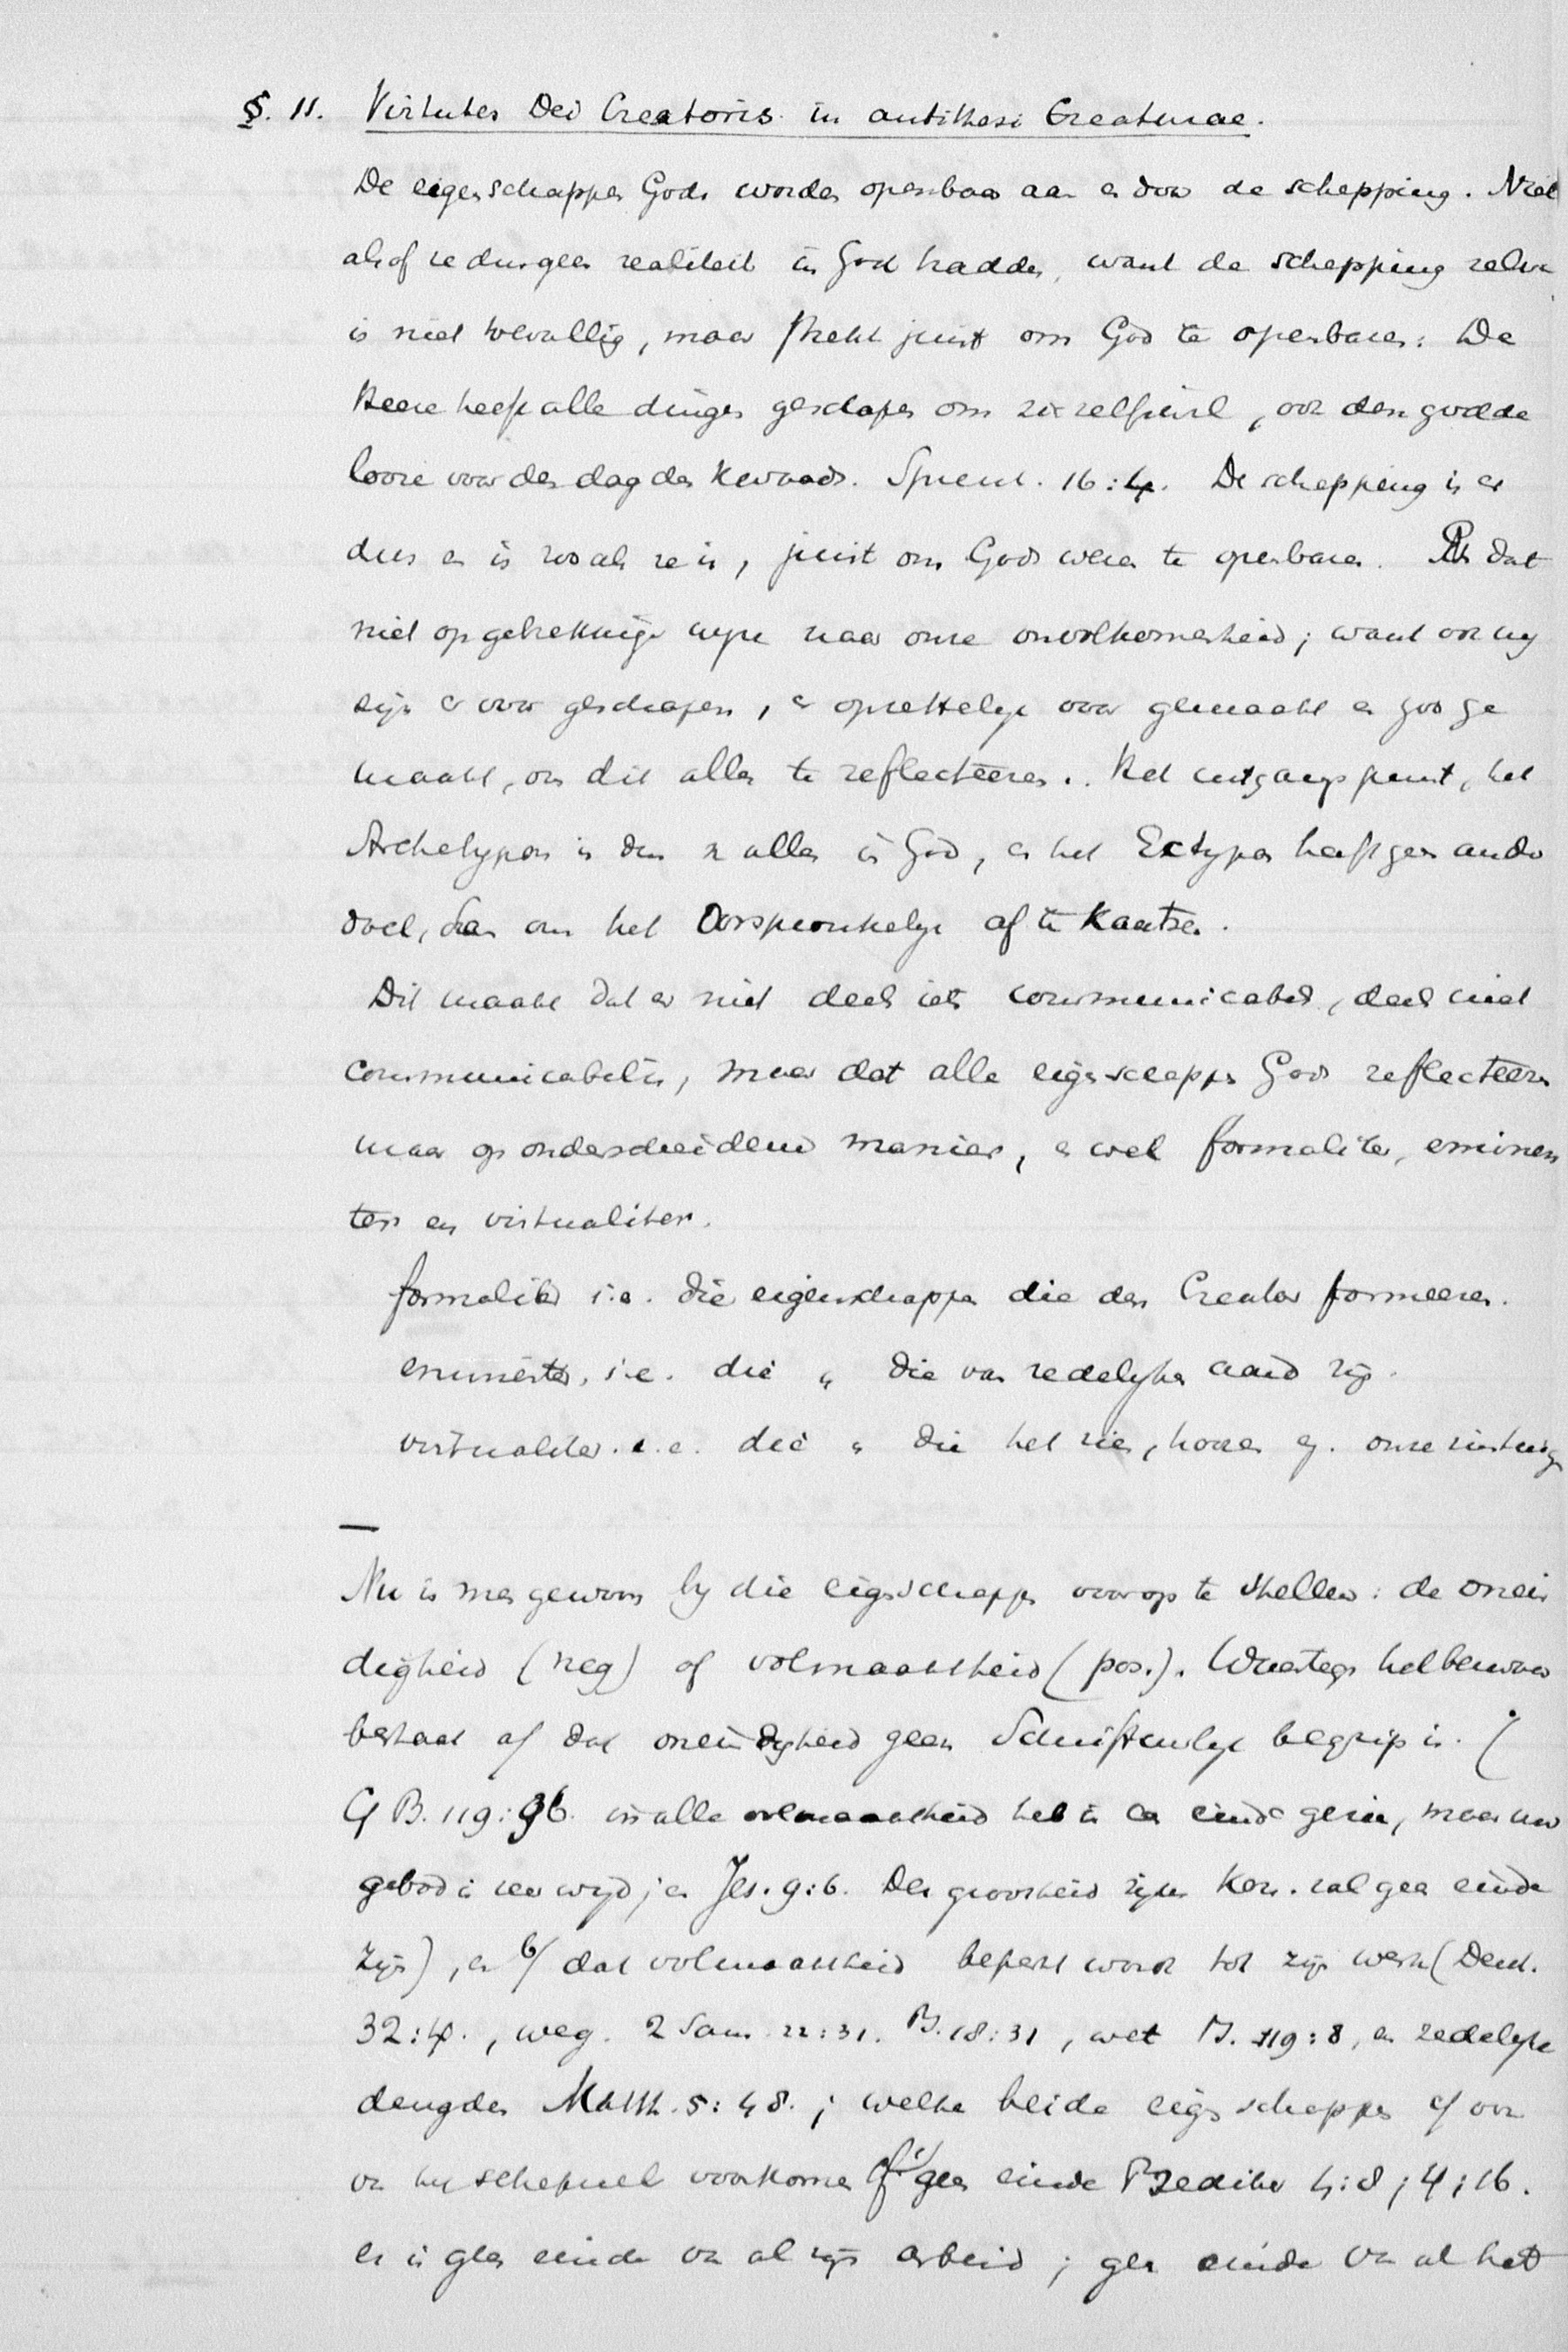 §. 11. Virtutes Dei Creatoris in antithesi Creaturae.
De eigenschappen Gods worden openbaar aan en door de schepping. Niet
alsof ze dus geen realiteit in God hadden, want de schepping zelve
is niet toevallig, maar strekt juist om God te openbaren: De
Heere heeft alle dingen geschapen om zix zelfswil, ook den godde
looze voor den dag des kwaads. Spreuk. 16:4. De schepping is er
dus en is zooals ze is, juist om Gods wezen te openbaren. En dat
niet op gebrekkige wijze naar onze onvolkomenheid; want ook wij
zijn er voor geschapen, er opzettelijk voor gemaakt en goed ge
maakt, om dit alles te reflecteeren. Het uitgangspunt, het
Archetypon is dus in alles in God, en het Ectypon heeft geen ander
doel, dan om het Oorspronkelijke af te Kaatsen.
Dit maakt dat er niet deels iets communicabel, deels niet
communicabel is, maar dat alle eigenschappen Gods reflecteeren
maar op onderscheidene manier, en wel formaliter, eminen
ter en virtualiter.
formaliter i.e. die eigenschappen die den Creator formeeren.
eminenter, i.e. die " die van redelijken aard zijn.
virtualiter. i.e. die " die het zien, hooren ej. onze zintuig
—
Nu is men gewoon bij die eigenschappen voorop te stellen: de onein
digheid (neg) of volmaaktheid (pos.). Waartegen het bezwaar
bestaat a/ dat oneindigheid geen Schriftuurlijk begrip is. (
Cf Ps. 119:96. in alle volmaaktheid heb ik een einde gezien, maar uw
gebod is zeer wijd; en Jes. 9:6. Der grootheid zijner Kon. zal geen einde
zijn), en b/ dat volmaaktheid beperkt wordt tot zijn werk (Deut.
32:4., weg. 2 Sam. 22:31. Ps. 18:31, wet Ps. 119:8, en zedelijke
deugden Matth. 5:48.; welke beide eigenschappen cf ook
van het schepsel voorkomen Cf 1/ geen einde Prediker 4:8; 4:16.
er is geen einde van al zijn arbeid; geen einde van al het